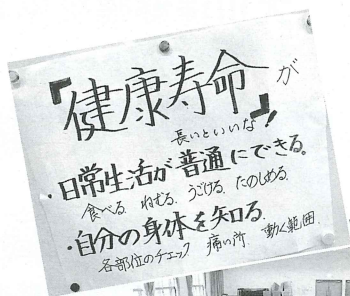 『健康寿命』が
長いといいな!
・日常生活が普通にできる。
食べる。ねむる。うごける。たのしめる。
・自分の身体を知る。
各部位のチェック 痛い所、動く範囲